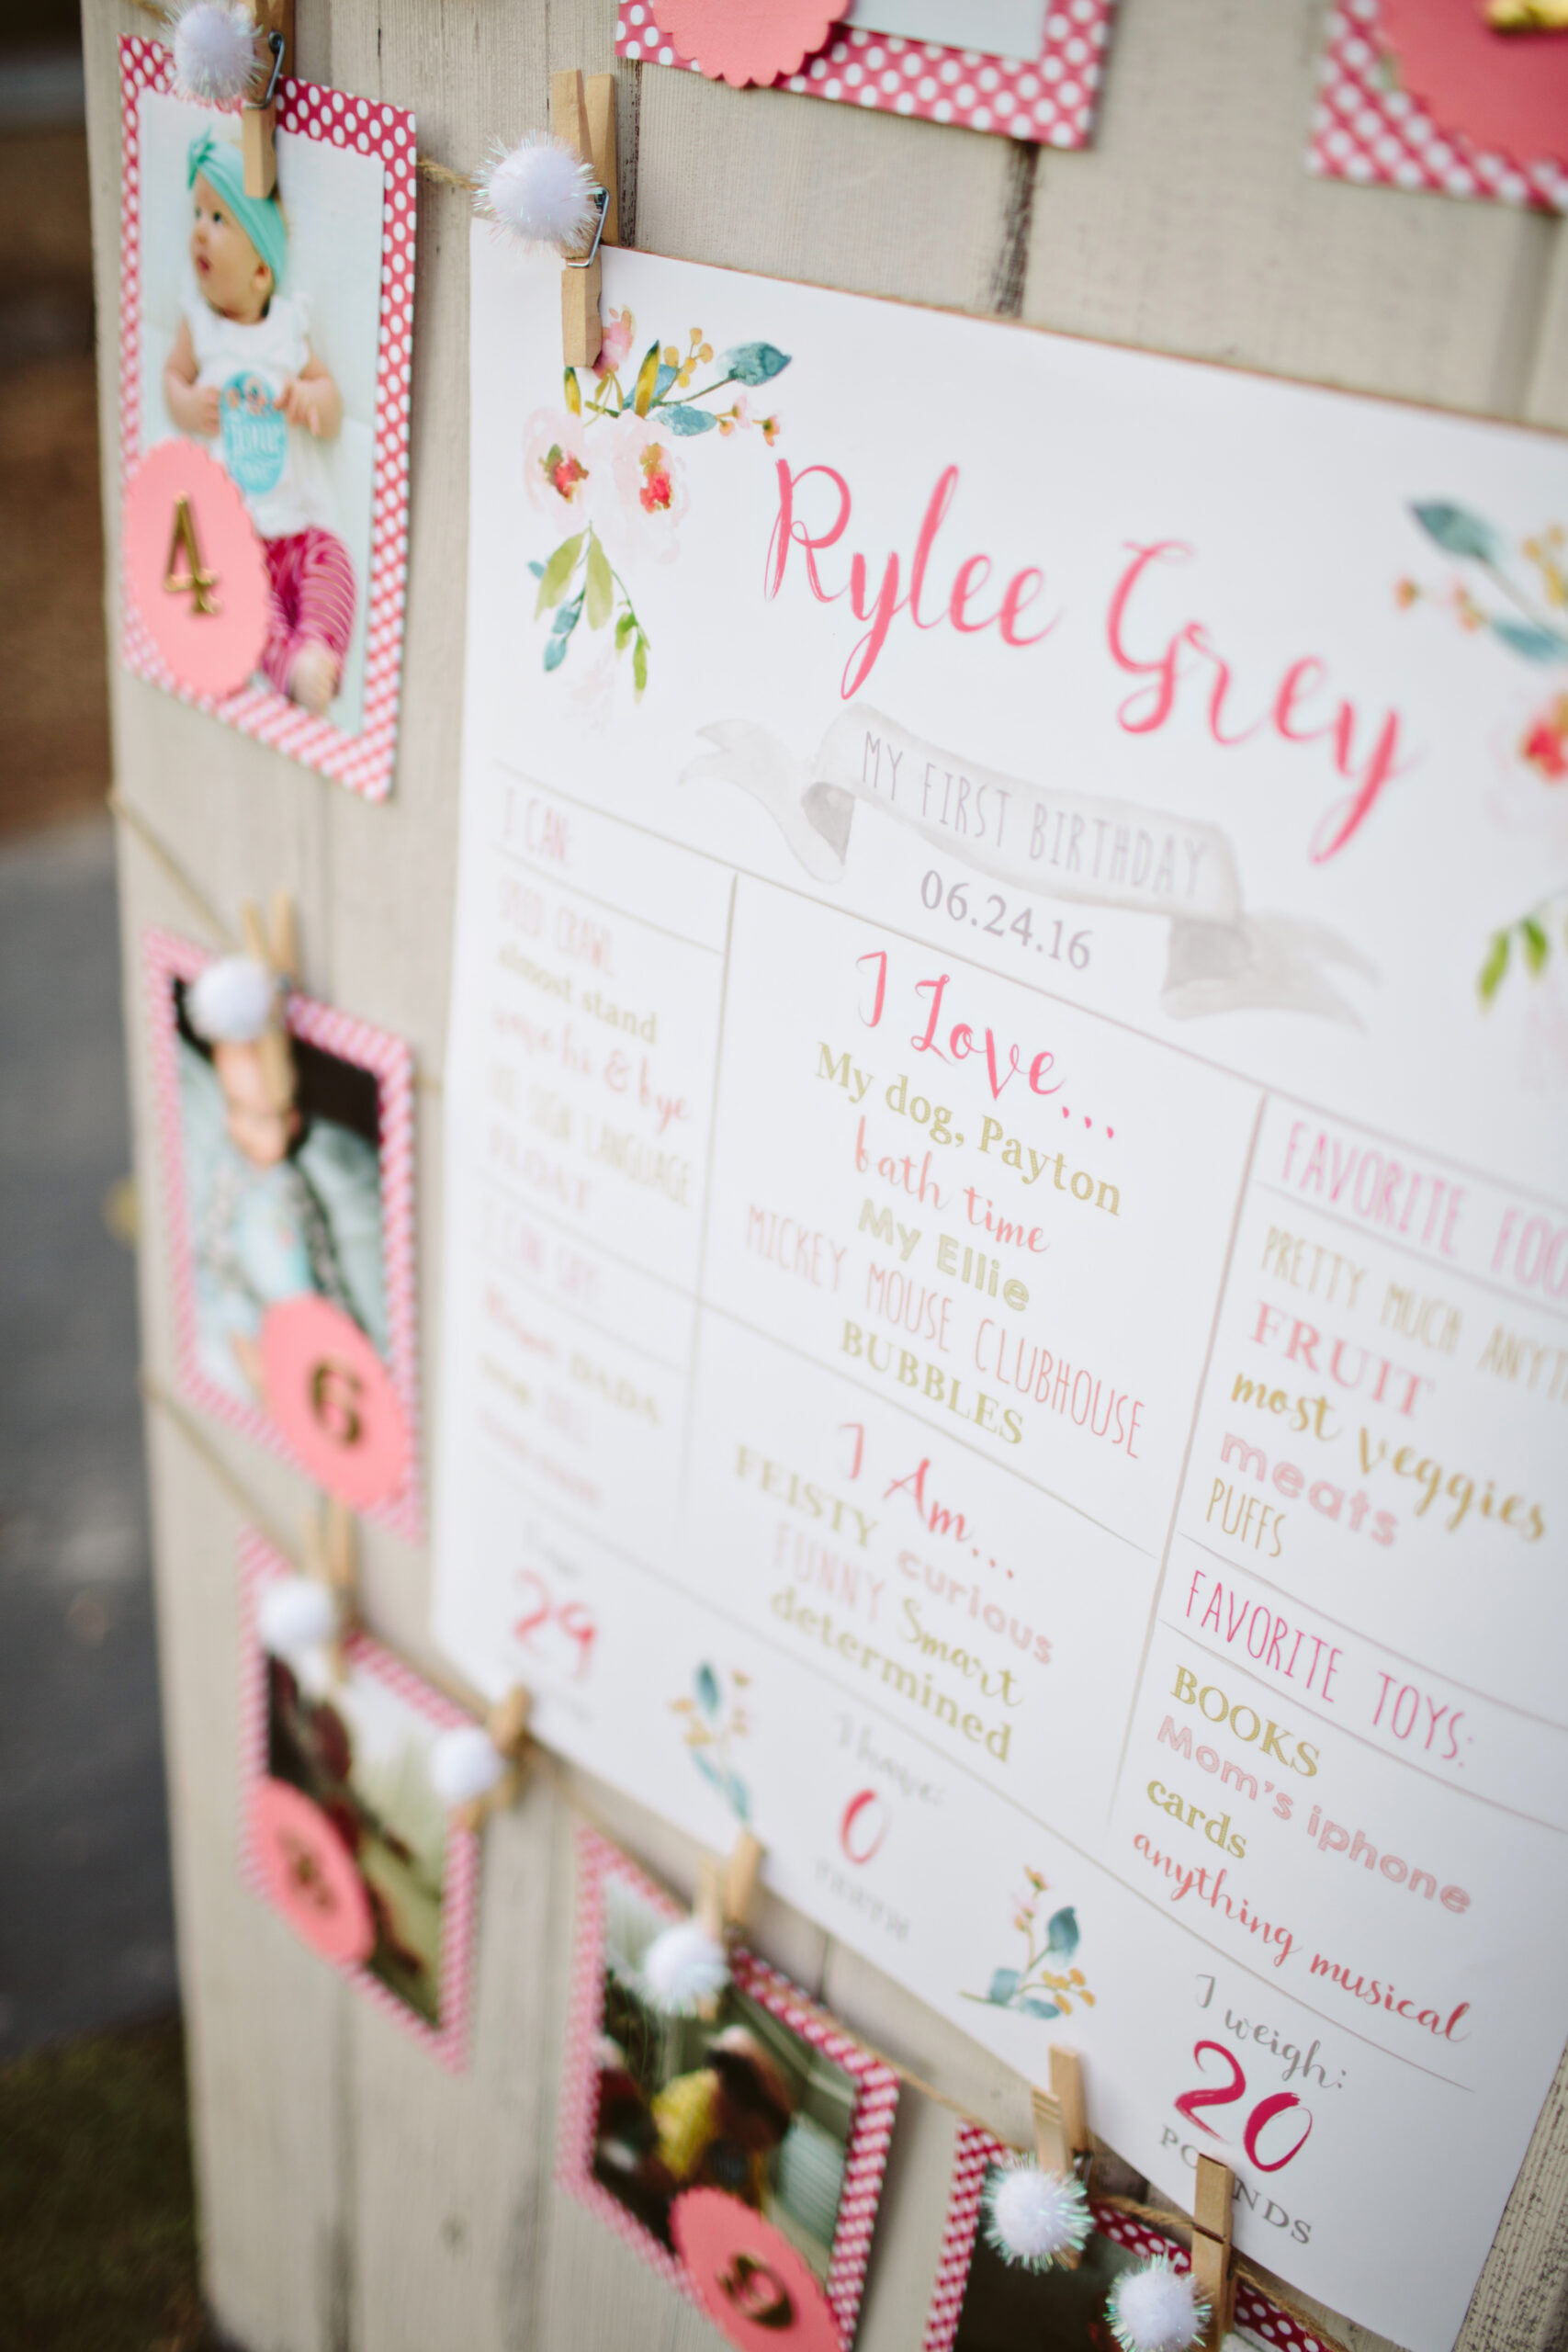 4
Rylee Grey
MY FIRST BIRTHDAY
06.24.16
I CAN:
almost stand
wave hi & bye
SIGN LANGUAGE
FLOAT
I CAN SAY:
DADA
29
I Love...
My dog, Payton
bath time
My Ellie
MICKEY MOUSE CLUBHOUSE
BUBBLES
I Am...
FEISTY curious
FUNNY Smart
determined
I have:
0
TEETH
FAVORITE
PRETTY MUCH
FRUIT
most veggies
meats
PUFFS
FAVORITE TOYS:
BOOKS
Mom's iphone
cards
anything musical
I weigh:
20
PO NDS
6